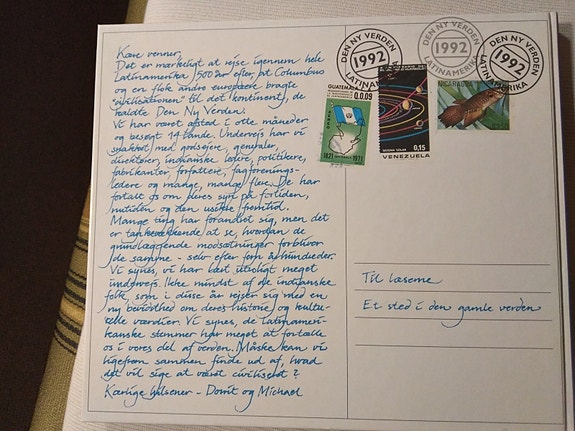 Kære venner,
Det er mærkeligt at rejse igennem hele
Latinamerika 500 år efter, at Columbus
og en flok andre europæere bragte
"civilisationen" til det kontinent, de
kaldte Den Ny Verden.
Vi har været afsted i otte måneder
og besøgt 14 lande. Undervejs har vi
snakket med godsejere, generaler,
direktører, indianske ledere, politikere,
fabrikanter, forfattere, fagforenings-
ledere og mange, mange flere. De har
fortalt os om deres syn på fortiden,
nutiden og den usikre fremtid.
Mange ting har forandret sig, men det
er tankevækkende at se, hvordan de
grundlæggende modsætninger forbliver
de samme - selv efter fem århundreder.
Vi synes, vi har lært utroligt meget
undervejs. Ikke mindst af de indianske
folk, som i disse år rejser sig med en
ny bevidsthed om deres historie og kultu-
relle værdier. Vi synes, de latinameri-
kanske stemmer har meget at fortælle
os i vores del af verden. Måske kan vi
ligefrem sammen finde ud af, hvad
det vil sige at være civiliseret?
Kærlige hilsener - Dorrit og Michael
DEN NY VERDEN
1992
LATINAMERIKA
DEN NY VERDEN
1992
LATINAMERIKA
DEN NY VERDEN
1992
LATINAMERIKA
GUATEMALA
0.0.09
1821
1971
VENEZUELA
0,15
NICARAGUA
Til læserne
Et sted i den gamle verden